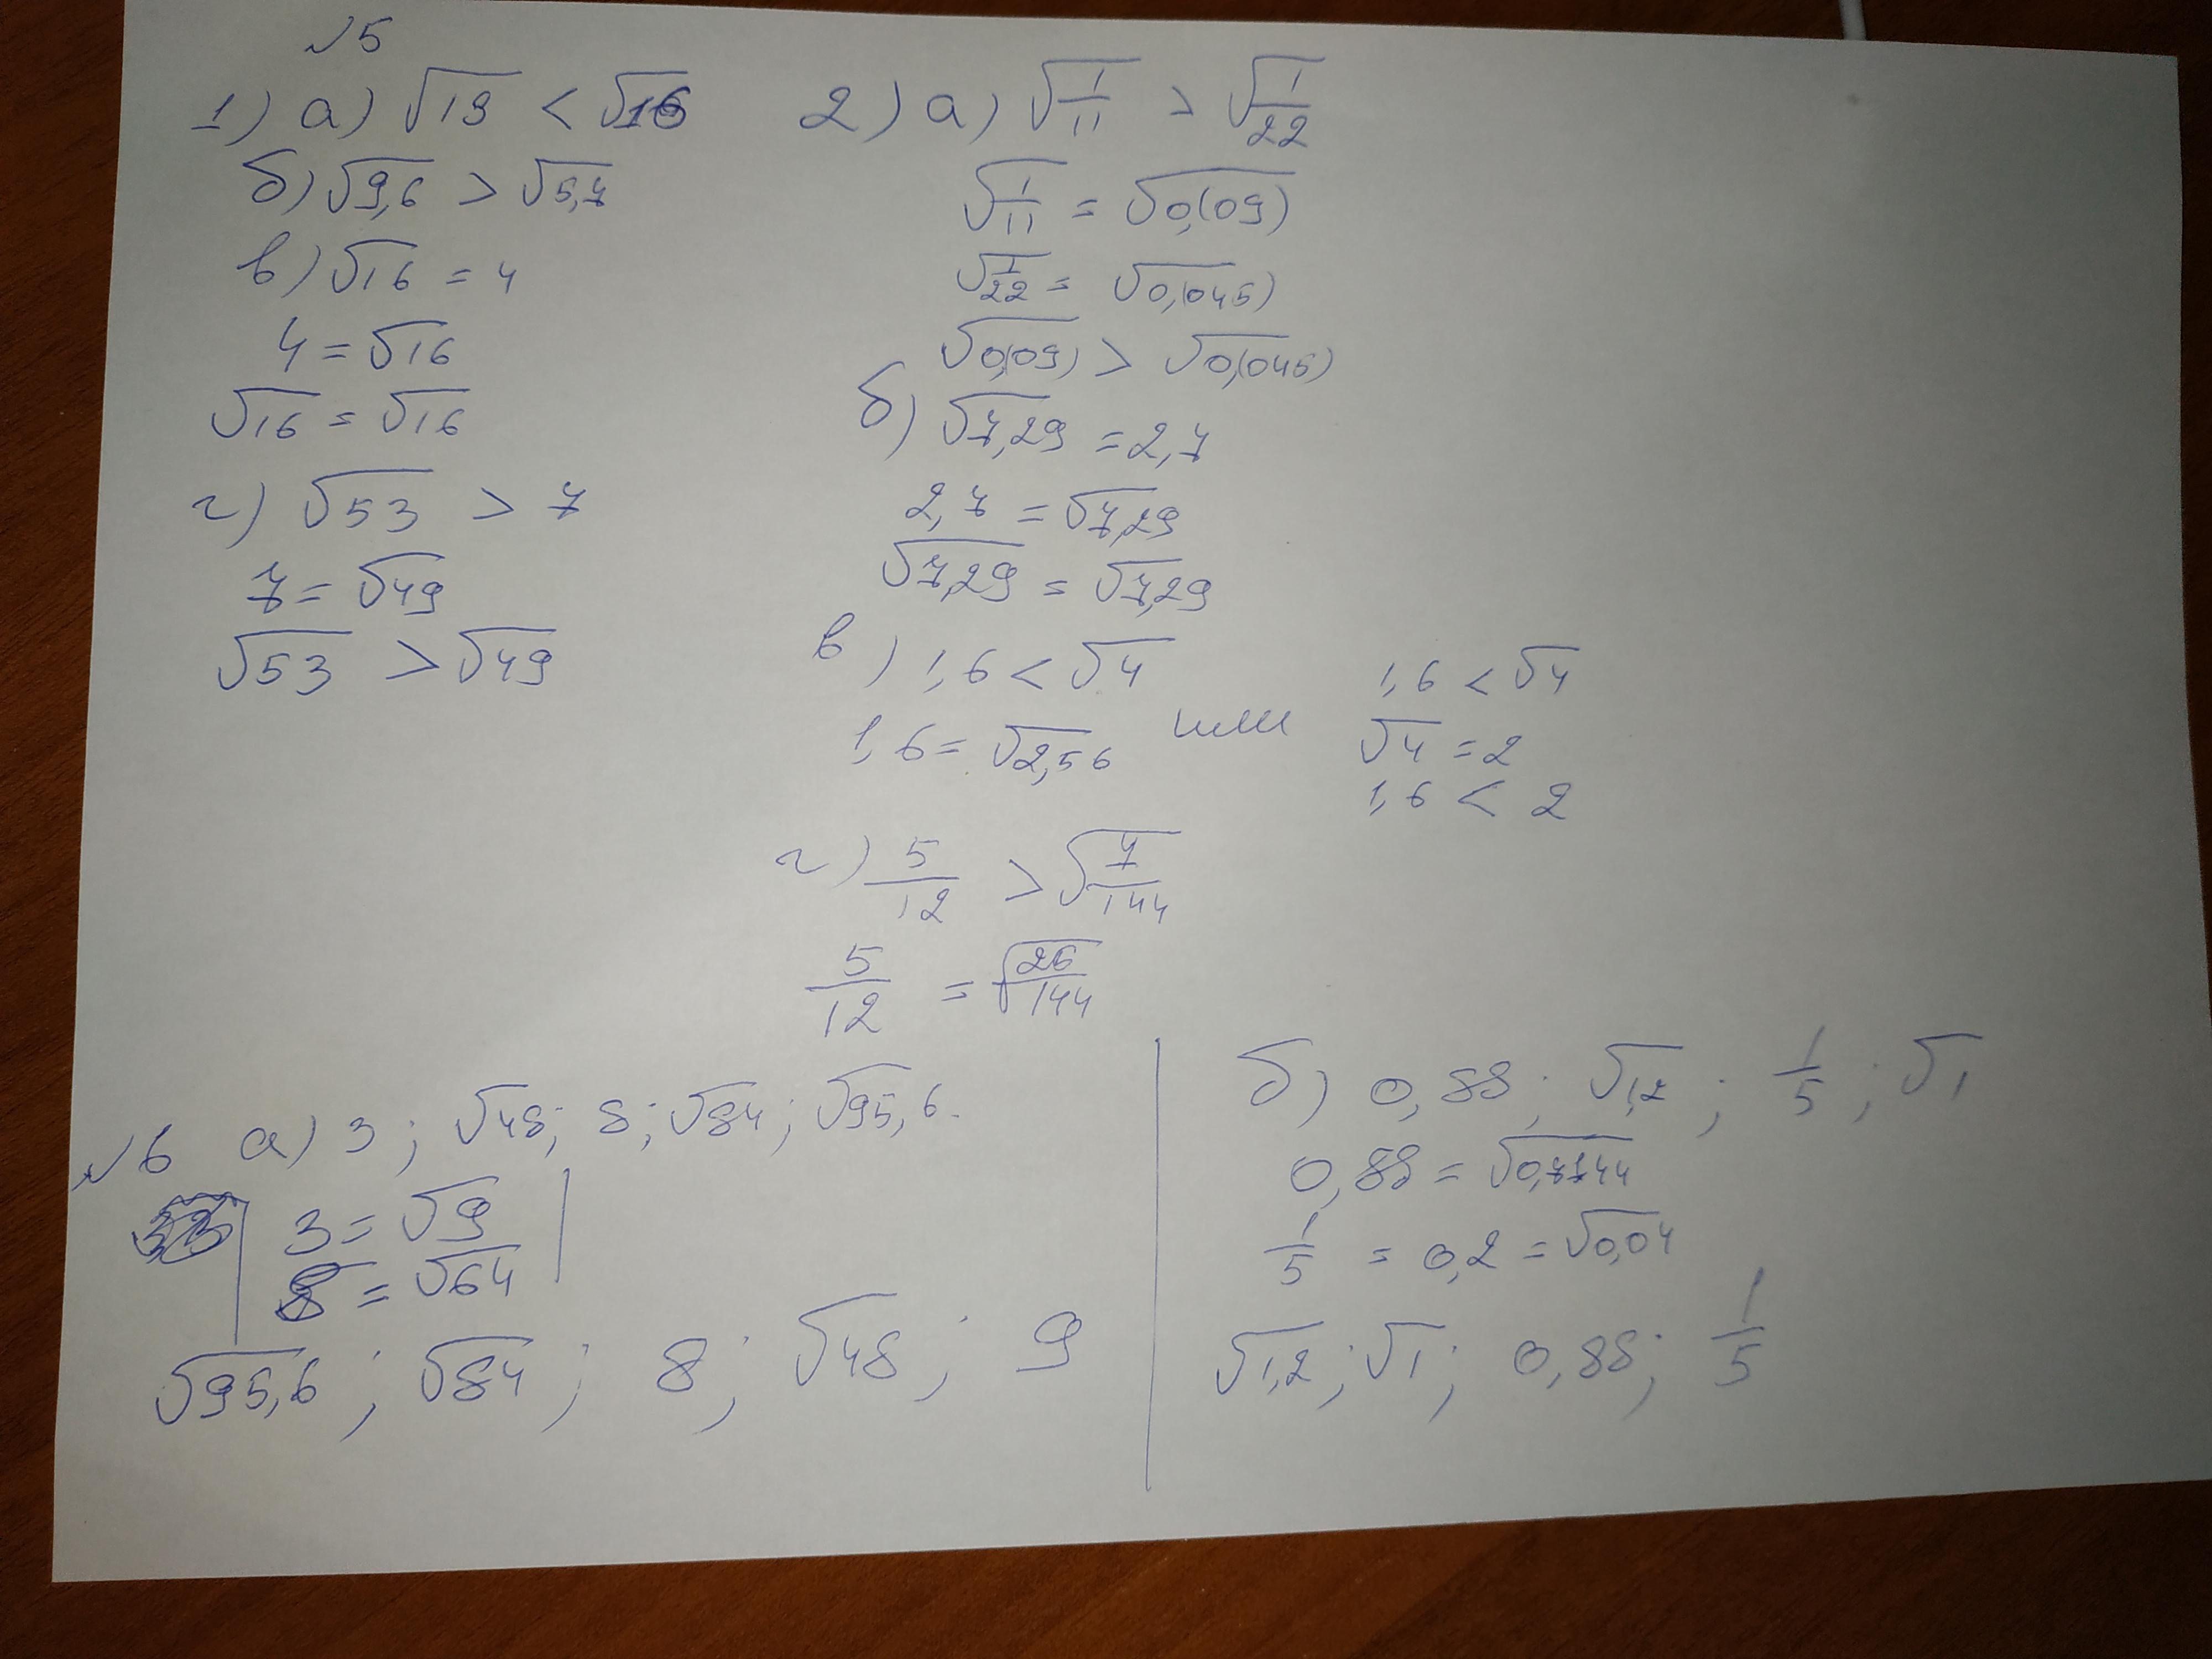 №5
1) а) √13 < √16
б) √9,6 > √5,7
в) √16 = 4
4 = √16
√16 = √16
г) √53 > 7
7 = √49
√53 > √49
2) а) √1/11 > √1/22
√1/11 = √0,(09)
√1/22 = √0,(045)
√0,(09) > √0,(045)
б) √7,29 = 2,7
2,7 = √7,29
√7,29 = √7,29
в) 1,6 < √4
1,6 = √2,56
или
1,6 < √4
√4 = 2
1,6 < 2
г) 5/12 > √7/144
5/12 = √26/144
№6 а) 3; √48; 8; √84; √95,6.
3 = √9
8 = √64
√95,6; √84; 8; √48; 9
б) 0,88; √1,2; 1/5; √1
0,88 = √0,7744
1/5 = 0,2 = √0,04
√1,2; √1; 0,88; 1/5